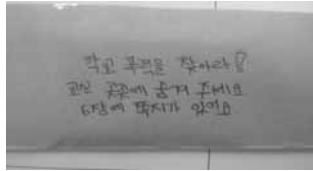 학교 폭력을 찾아라!
교실 곳곳에 숨겨 주세요
6장의 쪽지가 있어요